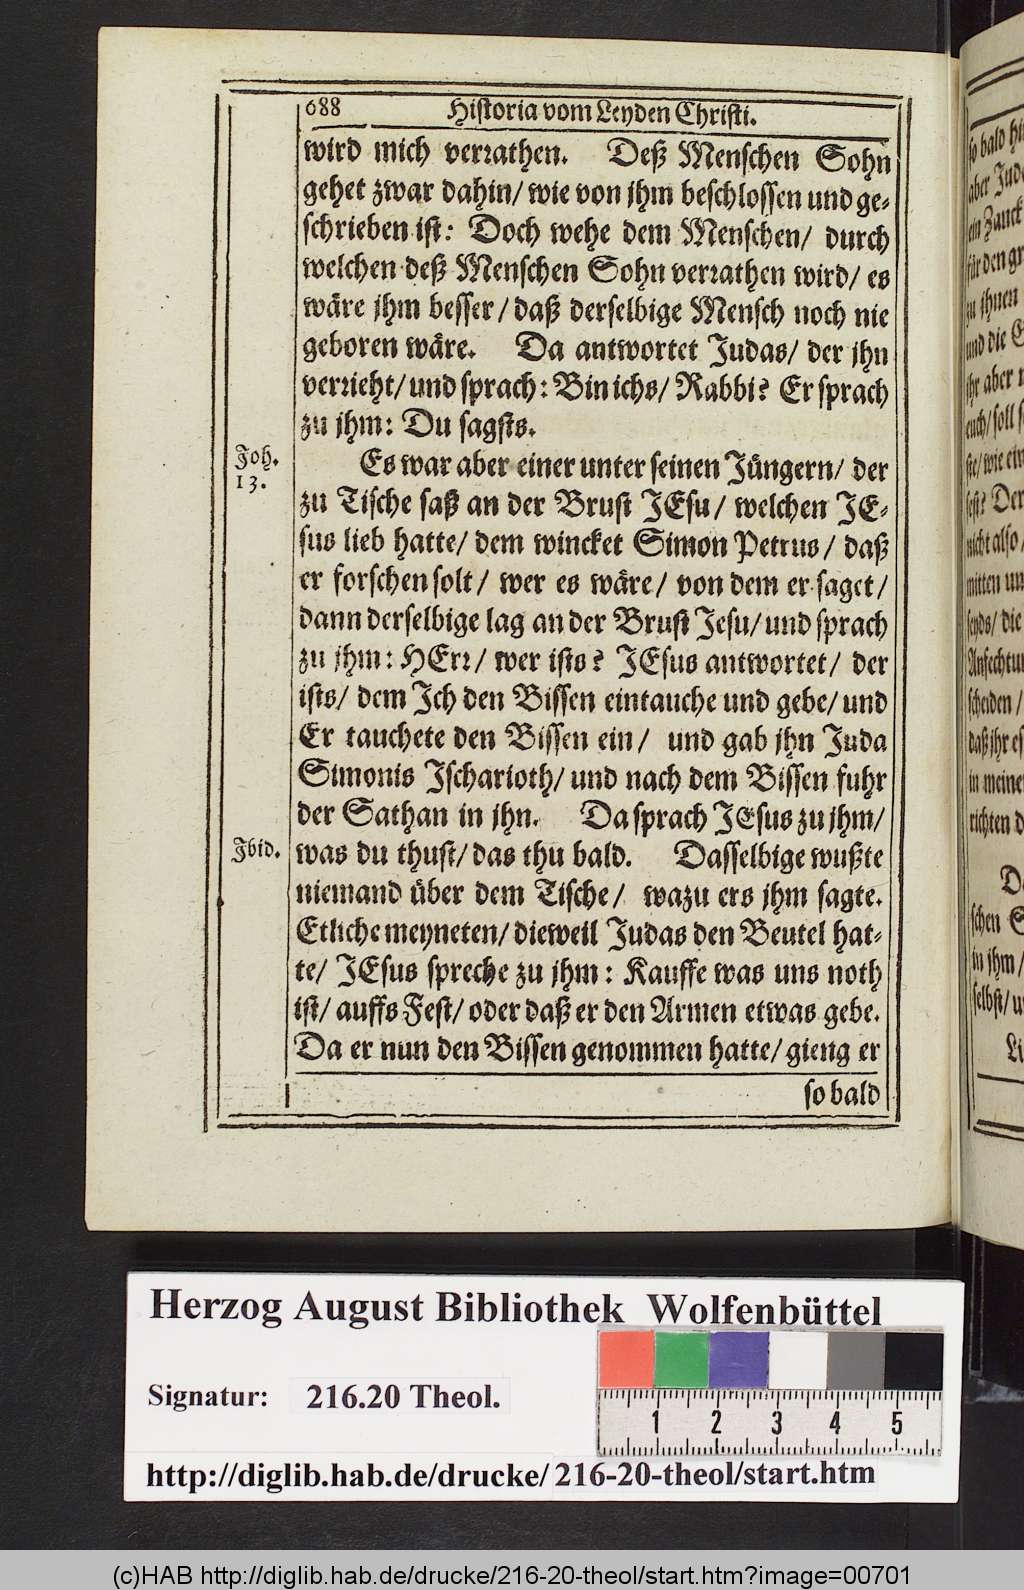 688 Historia vom Leyden Christi.
wird mich verrathen. Deß Menschen Sohn
gehet zwar dahin/ wie von jhm beschlossen und ge-
schrieben ist: Doch wehe dem Menschen/ durch
welchen deß Menschen Sohn verrathen wird/ es
wäre jhm besser/ daß derselbige Mensch noch nie
geboren wäre. Da antwortet Judas/ der jhn
verrieht/ und sprach: Bin ichs/ Rabbi? Er sprach
zu jhm: Du sagsts.
Joh.
13.
Es war aber einer unter seinen Jüngern/ der
zu Tische saß an der Brust JEsu/ welchen JE-
sus lieb hatte/ dem wincket Simon Petrus/ daß
er forschen solt/ wer es wäre/ von dem er saget/
dann derselbige lag an der Brust Jesu/ und sprach
zu jhm: HErr/ wer ists? JEsus antwortet/ der
ists/ dem Jch den Bissen eintauche und gebe/ und
Er tauchete den Bissen ein/ und gab jhn Juda
Simonis Jscharioth/ und nach dem Bissen fuhr
der Sathan in jhn. Da sprach JEsus zu jhm/
Jbid.
was du thust/ das thu bald. Dasselbige wußte
niemand über dem Tische/ wazu ers jhm sagte.
Etliche meyneten/ dieweil Judas den Beutel hat-
te/ JEsus spreche zu jhm: Kauffe was uns noth
ist/ auffs Fest/ oder daß er den Armen etwas gebe.
Da er nun den Bissen genommen hatte/ gieng er
so bald
so bald
ein Zanck
zu jhnen
und die
jhr aber
euch/ soll
nicht also/
mitten
die
daß jhr es
in meine
richten
schen
in jhm/
selbst/
Herzog August Bibliothek Wolfenbüttel
Signatur: 216.20 Theol.
1 2 3 4 5
http://diglib.hab.de/drucke/ 216-20-theol/start.htm
(c)HAB http://diglib.hab.de/drucke/216-20-theol/start.htm?image=00701